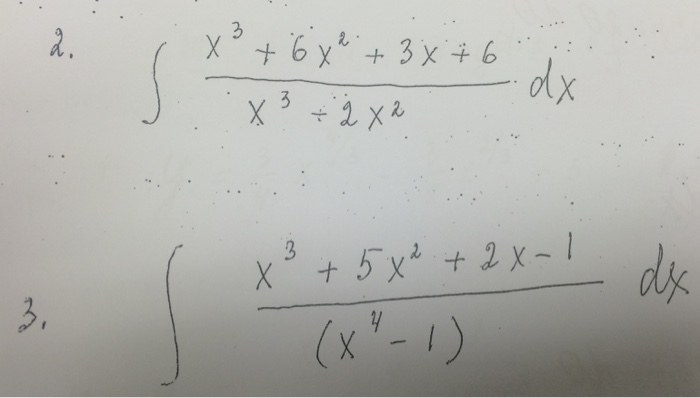 2. ∫ (x³ + 6x² + 3x + 6)/(x³ - 2x²) dx
3. ∫ (x³ + 5x² + 2x - 1)/(x⁴ - 1) dx